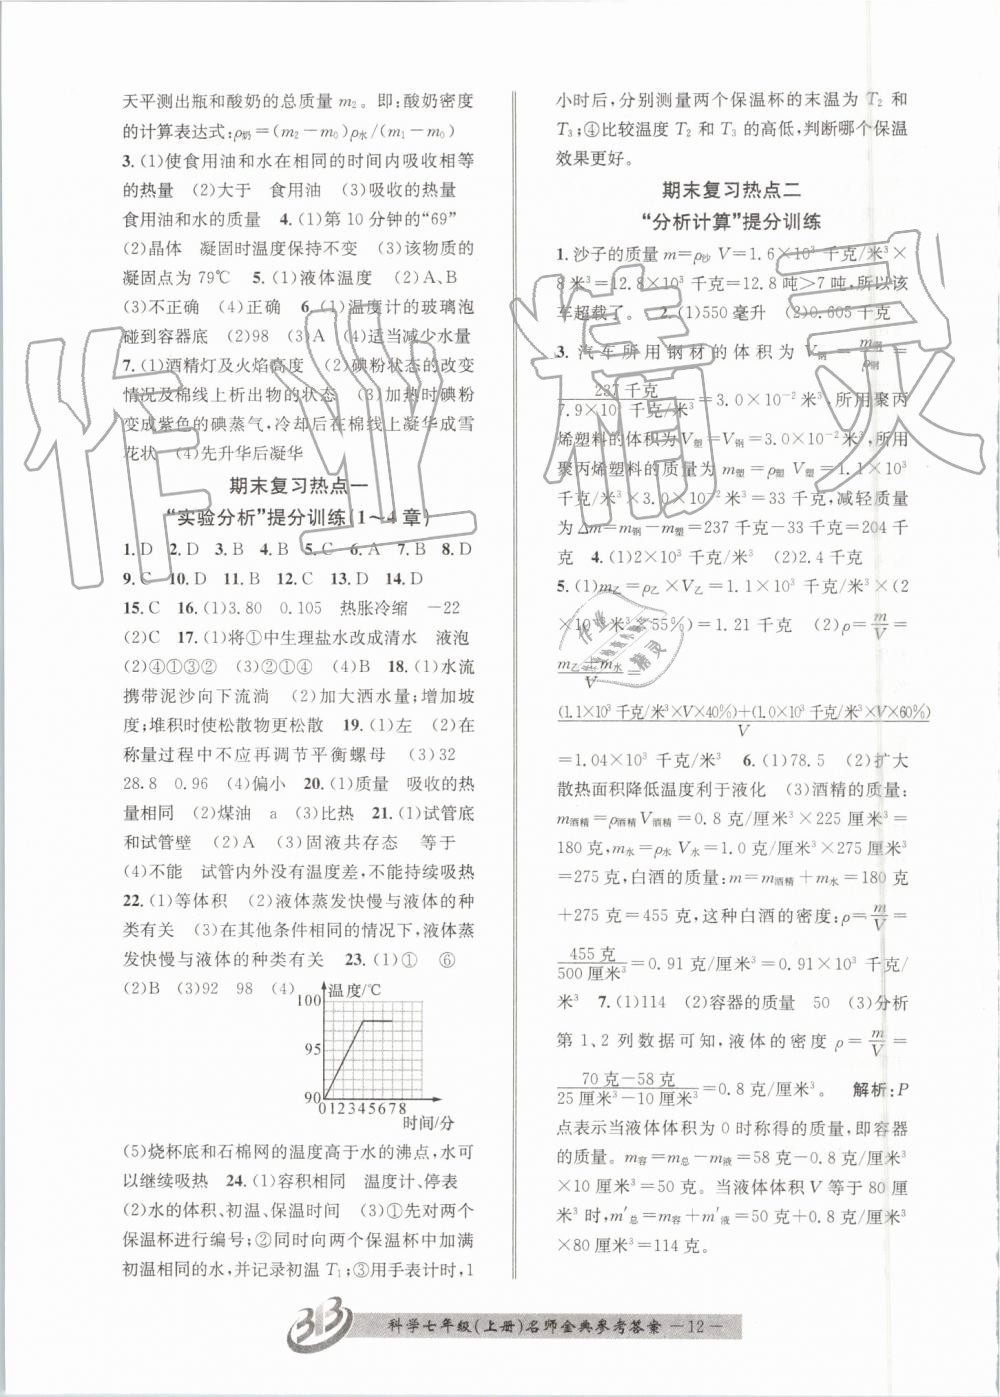 天平测出瓶和酸奶的总质量 m₂。即:酸奶密度
的计算表达式:ρ奶=(m₂－m₀)ρ水/(m₁－m₀)
3. (1)使食用油和水在相同的时间内吸收相等
的热量　(2)大于　食用油　(3)吸收的热量
食用油和水的质量　4. (1)第 10 分钟的“69”
(2)晶体　凝固时温度保持不变　(3)该物质的
凝固点为 79℃　5. (1)液体温度　(2)A、B
(3)不正确　(4)正确　6. (1)温度计的玻璃泡
碰到容器底　(2)98　(3)A　(4)适当减少水量
7. (1)酒精灯及火焰高度　(2)碘粉状态的改变
情况及棉线上析出物的状态　(3)加热时碘粉
变成紫色的碘蒸气,冷却后在棉线上凝华成雪
花状　(4)先升华后凝华
期末复习热点一
“实验分析”提分训练(1～4章)
1. D　2. D　3. B　4. B　5. C　6. A　7. B　8. D
9. C　10. D　11. B　12. C　13. D　14. D
15. C　16. (1)3.80　0.105　热胀冷缩　－22
(2)C　17. (1)将①中生理盐水改成清水　液泡
(2)④①③②　(3)②①④　(4)B　18. (1)水流
携带泥沙向下流淌　(2)加大洒水量;增加坡
度;堆积时使松散物更松散　19. (1)左　(2)在
称量过程中不应再调节平衡螺母　(3)32
28.8　0.96　(4)偏小　20. (1)质量　吸收的热
量相同　(2)煤油　a　(3)比热　21. (1)试管底
和试管壁　(2)A　(3)固液共存态　等于
(4)不能　试管内外没有温度差,不能持续吸热
22. (1)等体积　(2)液体蒸发快慢与液体的种
类有关　(3)在其他条件相同的情况下,液体蒸
发快慢与液体的种类有关　23. (1)①　⑥
(2)B　(3)92　98　(4)
温度/℃
100
95
90
0 1 2 3 4 5 6 7 8
时间/分
(5)烧杯底和石棉网的温度高于水的沸点,水可
以继续吸热　24. (1)容积相同　温度计、停表
(2)水的体积、初温、保温时间　(3)①先对两个
保温杯进行编号;②同时向两个保温杯中加满
初温相同的水,并记录初温 T₁;③用手表计时,1
小时后,分别测量两个保温杯的末温为 T₂ 和
T₃;④比较温度 T₂ 和 T₃ 的高低,判断哪个保温
效果更好。
期末复习热点二
“分析计算”提分训练
1. 沙子的质量 m=ρ沙 V=1.6×10³ 千克/米³×
8 米³=12.8×10³ 千克=12.8 吨>7 吨,所以该
车超载了。　2. (1)550 毫升　(2)0.605 千克
3. 汽车所用钢材的体积为 V钢=m钢/ρ钢=
237 千克/7.9×10³ 千克/米³=3.0×10⁻² 米³,所用聚丙
烯塑料的体积为 V塑=V钢=3.0×10⁻² 米³,所用
聚丙烯塑料的质量为 m塑=ρ塑V塑=1.1×10³
千克/米³×3.0×10⁻² 米³=33 千克,减轻质量
为 △m=m钢－m塑=237 千克－33 千克=204 千
克　4. (1)2×10³ 千克/米³　(2)2.4 千克
5. (1)m乙=ρ乙×V乙=1.1×10³ 千克/米³×(2
×10⁻³ 米³×55%)=1.21 千克　(2)ρ=m/V=
m乙+m水/V=
(1.1×10³ 千克/米³×V×40%)+(1.0×10³千克/米³×V×60%)/V
=1.04×10³ 千克/米³　6. (1)78.5　(2)扩大
散热面积降低温度利于液化　(3)酒精的质量:
m酒精=ρ酒精V酒精=0.8 克/厘米³×225 厘米³=
180克,m水=ρ水 V水=1.0 克/厘米³×275 厘米³
=275 克,白酒的质量:m=m酒精+m水=180 克
+275 克=455 克,这种白酒的密度:ρ=m/V=
455 克/500 厘米³=0.91 克/厘米³=0.91×10³ 千克/
米³　7. (1)114　(2)容器的质量　50　(3)分析
第 1、2 列数据可知,液体的密度 ρ=m/V=
70 克－58 克/25 厘米³－10 厘米³=0.8 克/厘米³。　解析:P
点表示当液体体积为 0 时称得的质量,即容器
的质量。m容=m总－m液=58 克－0.8 克/厘米³
×10 厘米³=50 克。当液体体积 V 等于 80 厘
米³ 时,m′总=m容+m′液=50 克+0.8 克/厘米³
×80 厘米³=114 克。
科学七年级(上册)名师金典参考答案　－12－
作业精灵
作业精灵